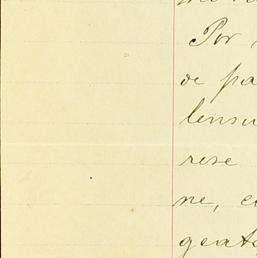 Por
de pa
lensu
rese
ne, c
geats